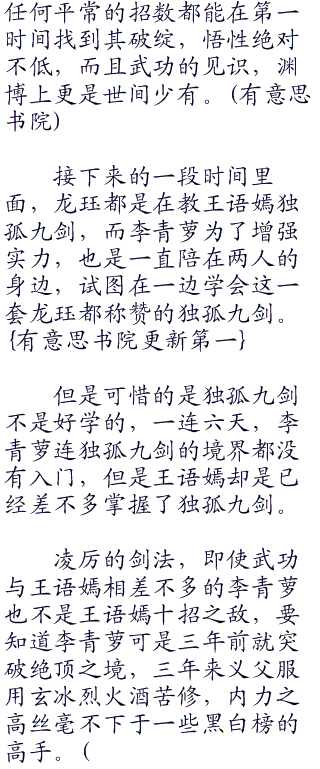 任何平常的招数都能在第一
时间找到其破绽，悟性绝对
不低，而且武功的见识，渊
博上更是世间少有。(有意思
书院)
接下来的一段时间里
面，龙珏都是在教王语嫣独
孤九剑，而李青萝为了增强
实力，也是一直陪在两人的
身边，试图在一边学会这一
套龙珏都称赞的独孤九剑。
{有意思书院更新第一}
但是可惜的是独孤九剑
不是好学的，一连六天，李
青萝连独孤九剑的境界都没
有入门，但是王语嫣却是已
经差不多掌握了独孤九剑。
凌厉的剑法，即使武功
与王语嫣相差不多的李青萝
也不是王语嫣十招之敌，要
知道李青萝可是三年前就突
破绝顶之境，三年来义父服
用玄冰烈火酒苦修，内力之
高丝毫不下于一些黑白榜的
高手。(